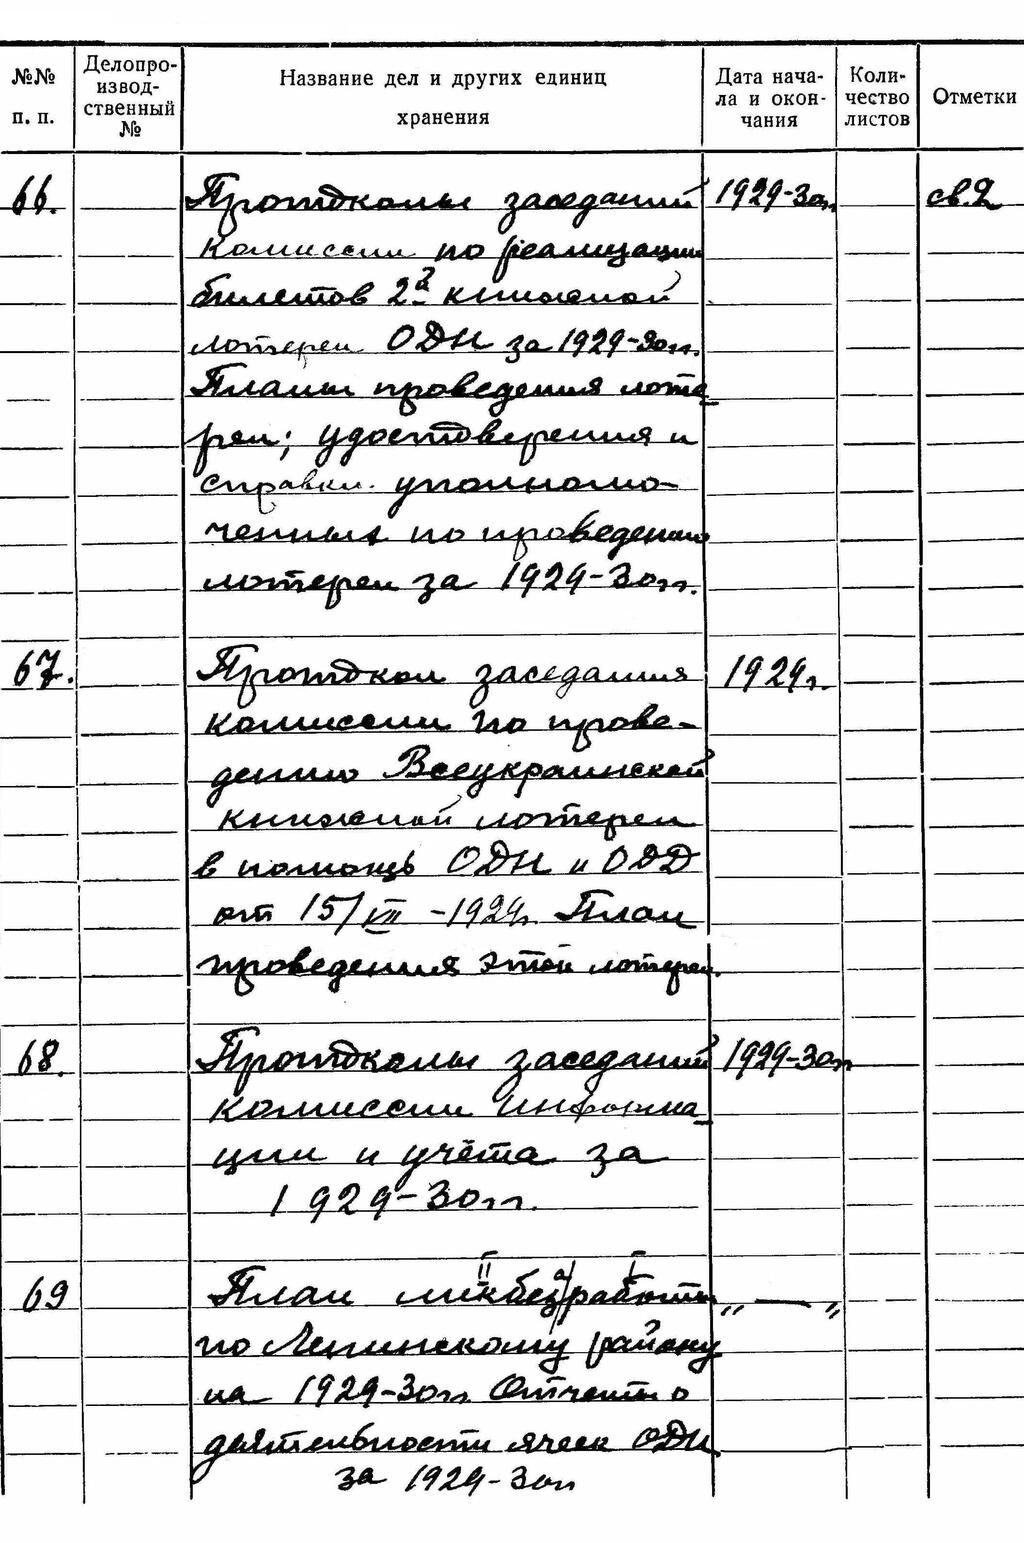 №№ п. п.
Делопро-
извод-
ственный
№
Название дел и других единиц
хранения
Дата нача-
ла и окон-
чания
Коли-
чество
листов
Отметки
66. Протоколы заседаний 1929-30гг. св.2
комиссии по реализации
билетов 2й книжной
лотереи ОДН за 1929-30гг.
Планы проведения лоте-
реи; удостоверения и
справки уполномо-
ченных по проведению
лотереи за 1929-30гг.
67. Протокол заседания 1929г.
комиссии по прове-
дению Всеукраинской
книжной лотереи
в помощь ОДН и ОДД
от 15/VIII-1929г. План
проведения этой лотереи.
68. Протоколы заседаний 1929-30гг
комиссии информа-
ции и учёта за
1929-30гг.
69 План ликбезработы „ — „
по Ленинскому району
на 1929-30гг. Отчеты о
деятельности ячеек ОДН
за 1929-30гг